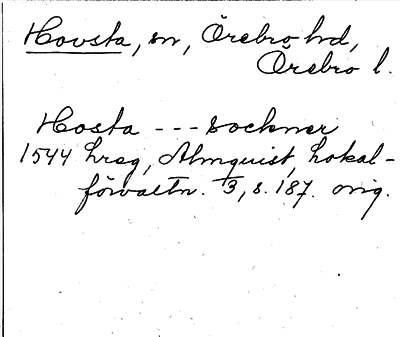 Hovsta, sn, Örebro hd,
Örebro l.
Hosta --- sockner
1544 hreg, Almquist, Lokal-
förvaltn. 3, s. 187. orig.